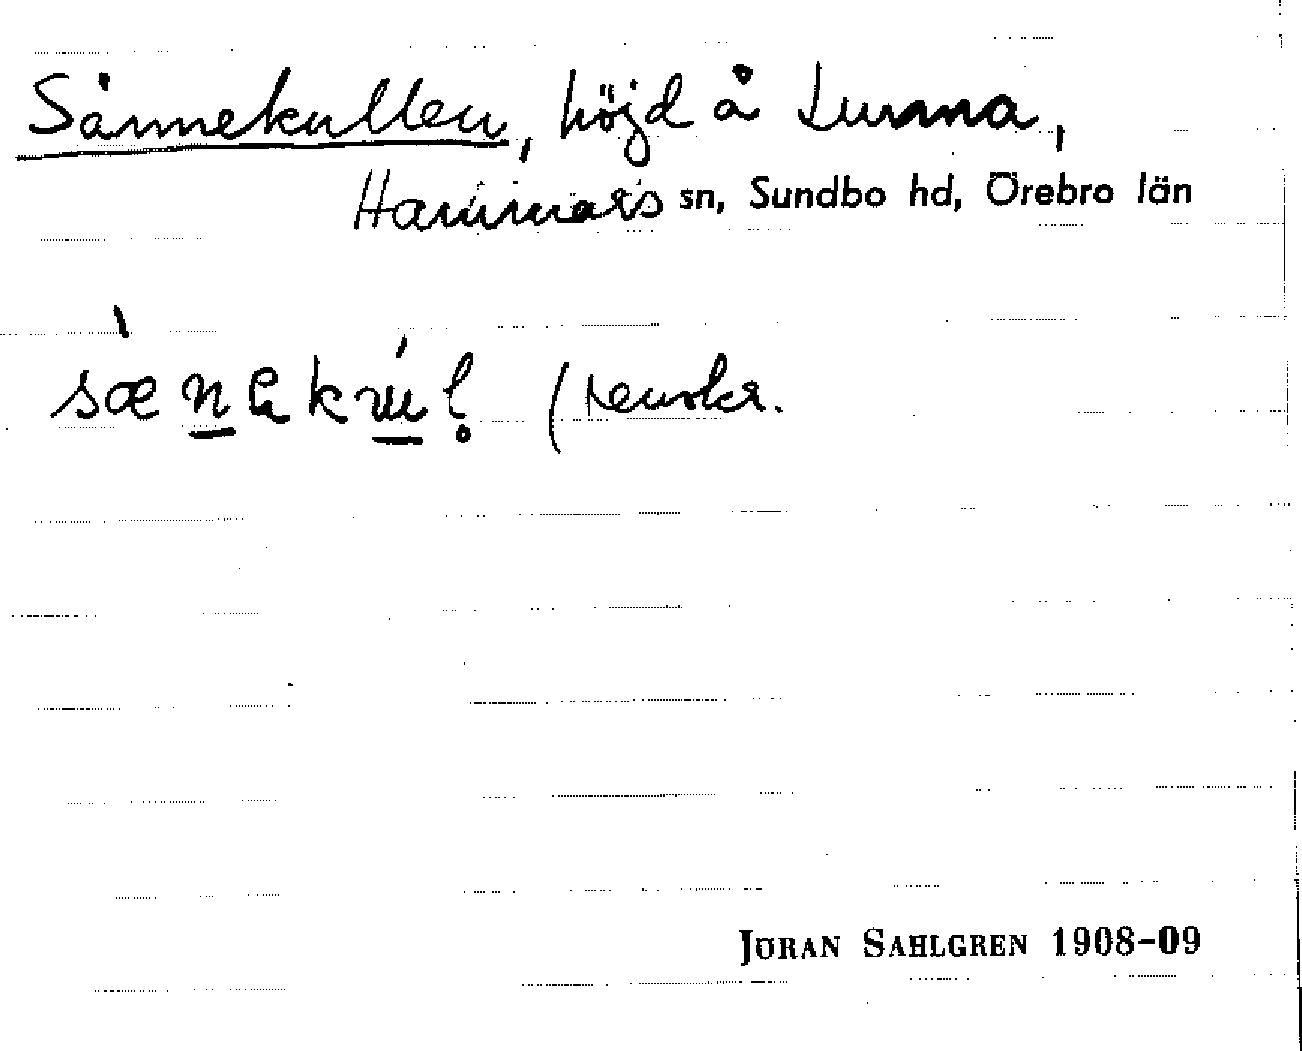 Sånnekullen, höjd å Lunna,
Hammars sn, Sundbo hd, Örebro län
(renskr.
JÖRAN SAHLGREN 1908-09